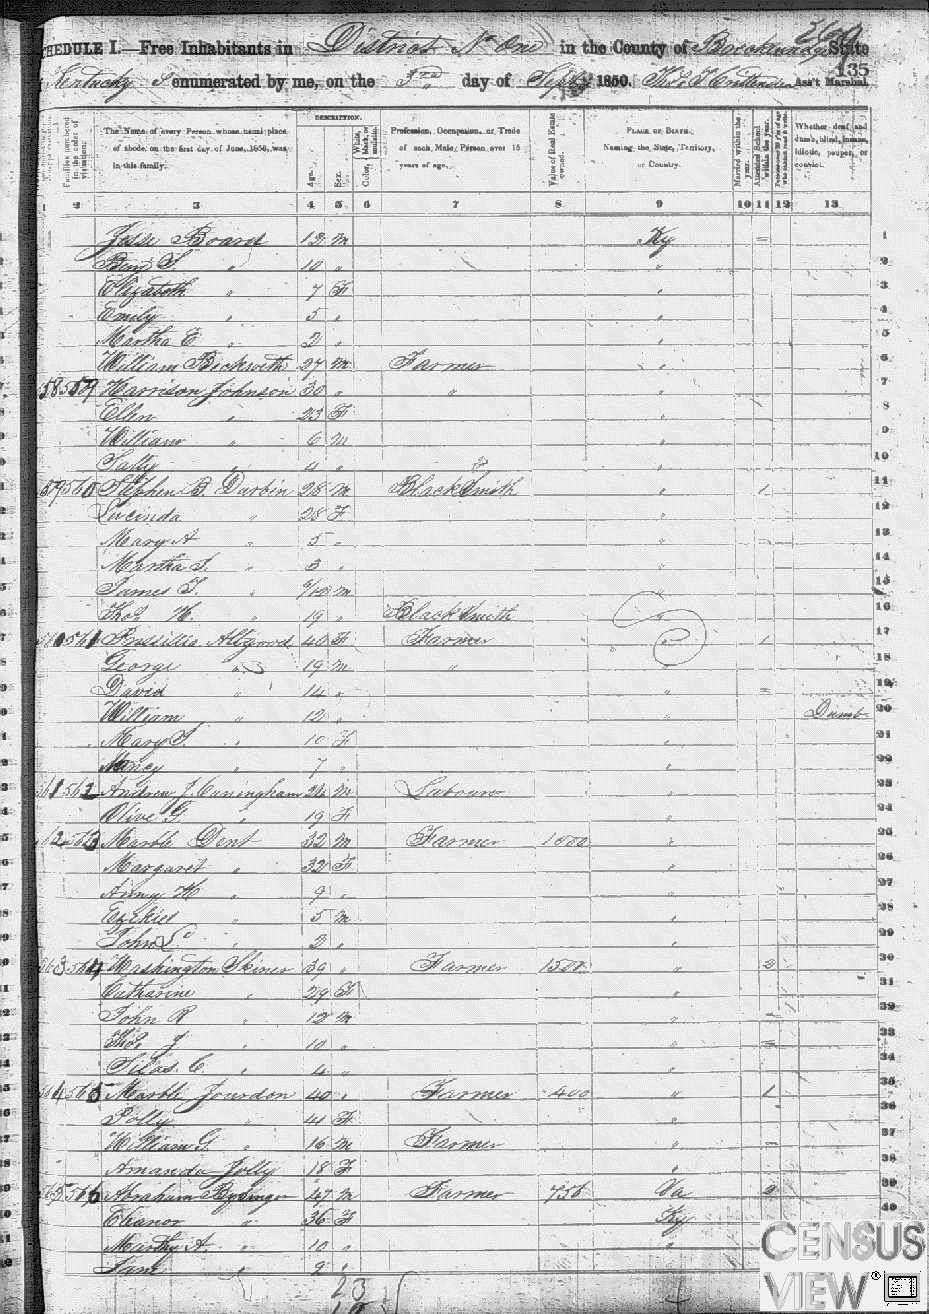 360
SCHEDULE I.—Free Inhabitants in District No One in the County of Breckenridge State
135
Kentucky enumerated by me, on the 3rd day of Sept 1850. Ass't Marshal.
DESCRIPTION.
The Name of every Person whose usual place of abode on the first day of June, 1850, was in this family.
Age.
Sex.
Color, White, black, or mulatto.
Profession, Occupation, or Trade of each Male Person over 15 years of age.
Value of Real Estate owned.
PLACE OF BIRTH. Naming the State, Territory, or Country.
Married within the year.
Attended School within the year.
Whether deaf and dumb, blind, insane, idiotic, pauper, or convict.
1 2 3 4 5 6 7 8 9 10 11 12 13
Jesse Board 12 M Ky 1
Benj. S. " 10 " " 2
Elizabeth " 7 F " 3
Emily " 5 " " 4
Martha E " 2 " " 5
William Beckwith 27 M Farmer " 6
58 559 Harrison Johnson 30 " " " 7
Ellen " 23 F " 8
William " 6 M " 9
Sally " 4 " " 10
59 560 Stephen B. Durbin 28 M BlackSmith " 1 11
Lucinda " 28 F " 12
Mary A " 5 " " 13
Martha S. " 3 " 14
James T. " 9/12 M " 15
Thos H. " 19 " BlackSmith " 16
561 Allgood 40 F Farmer " 1 17
George " 19 M " " 18
David " 14 " " 19
William " 12 " " Dumb 20
Mary S. " 10 F " 21
Nancy " 7 " " 22
561 562 Andrew J. Cuningham 24 M " 23
Olive G. " 19 F " 24
562 563 Marble Dent 32 M Farmer 1000 " 25
Margaret " 32 F " 26
H " 9 " " 27
Ezekiel " 5 M " 28
John L. " 2 " " 29
563 564 Washington Skiner 39 " Farmer 1500 " 2 30
Catharine " 29 F " 31
John R " 12 M " 32
Thos J " 10 " " 33
Silas C. " 4 " " 34
564 565 Jourdon 40 " Farmer 400 " 1 35
Polly " 41 F " 36
William G. " 16 M Farmer " 37
Amanda Jolly 18 F " 38
565 566 Abraham 47 M Farmer 750 Va 2 39
Eleanor " 36 F Ky 40
Martha A. " 10 " "
" 9 " "
23
CENSUS
VIEW®